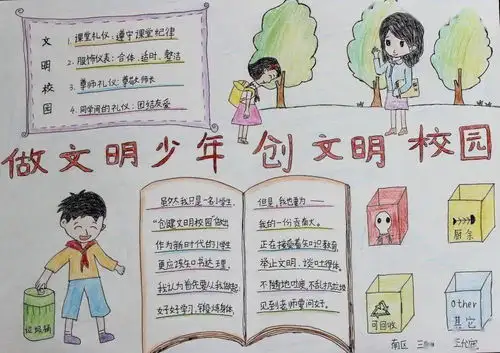 文明校园
1. 课堂礼仪:遵守课堂纪律
2. 服饰仪表:合体、适时、整洁
3. 尊师礼仪:尊敬师长
4. 同学间的礼仪:团结友爱
做文明少年 创文明校园
虽然我只是一名小学生,
"创建文明校园"做出
作为新时代的小学生
更应该知书达理.
我认为首先要从我做起:
好好学习,锻炼身体.
但是,我也要为——
我的一份贡献大。
正在接受着知识教育,
举止文明、谈吐得体。
不随地吐痰、不乱扔垃圾
见到老师要问好。
垃圾桶
厨余
可回收
other
其它
南区